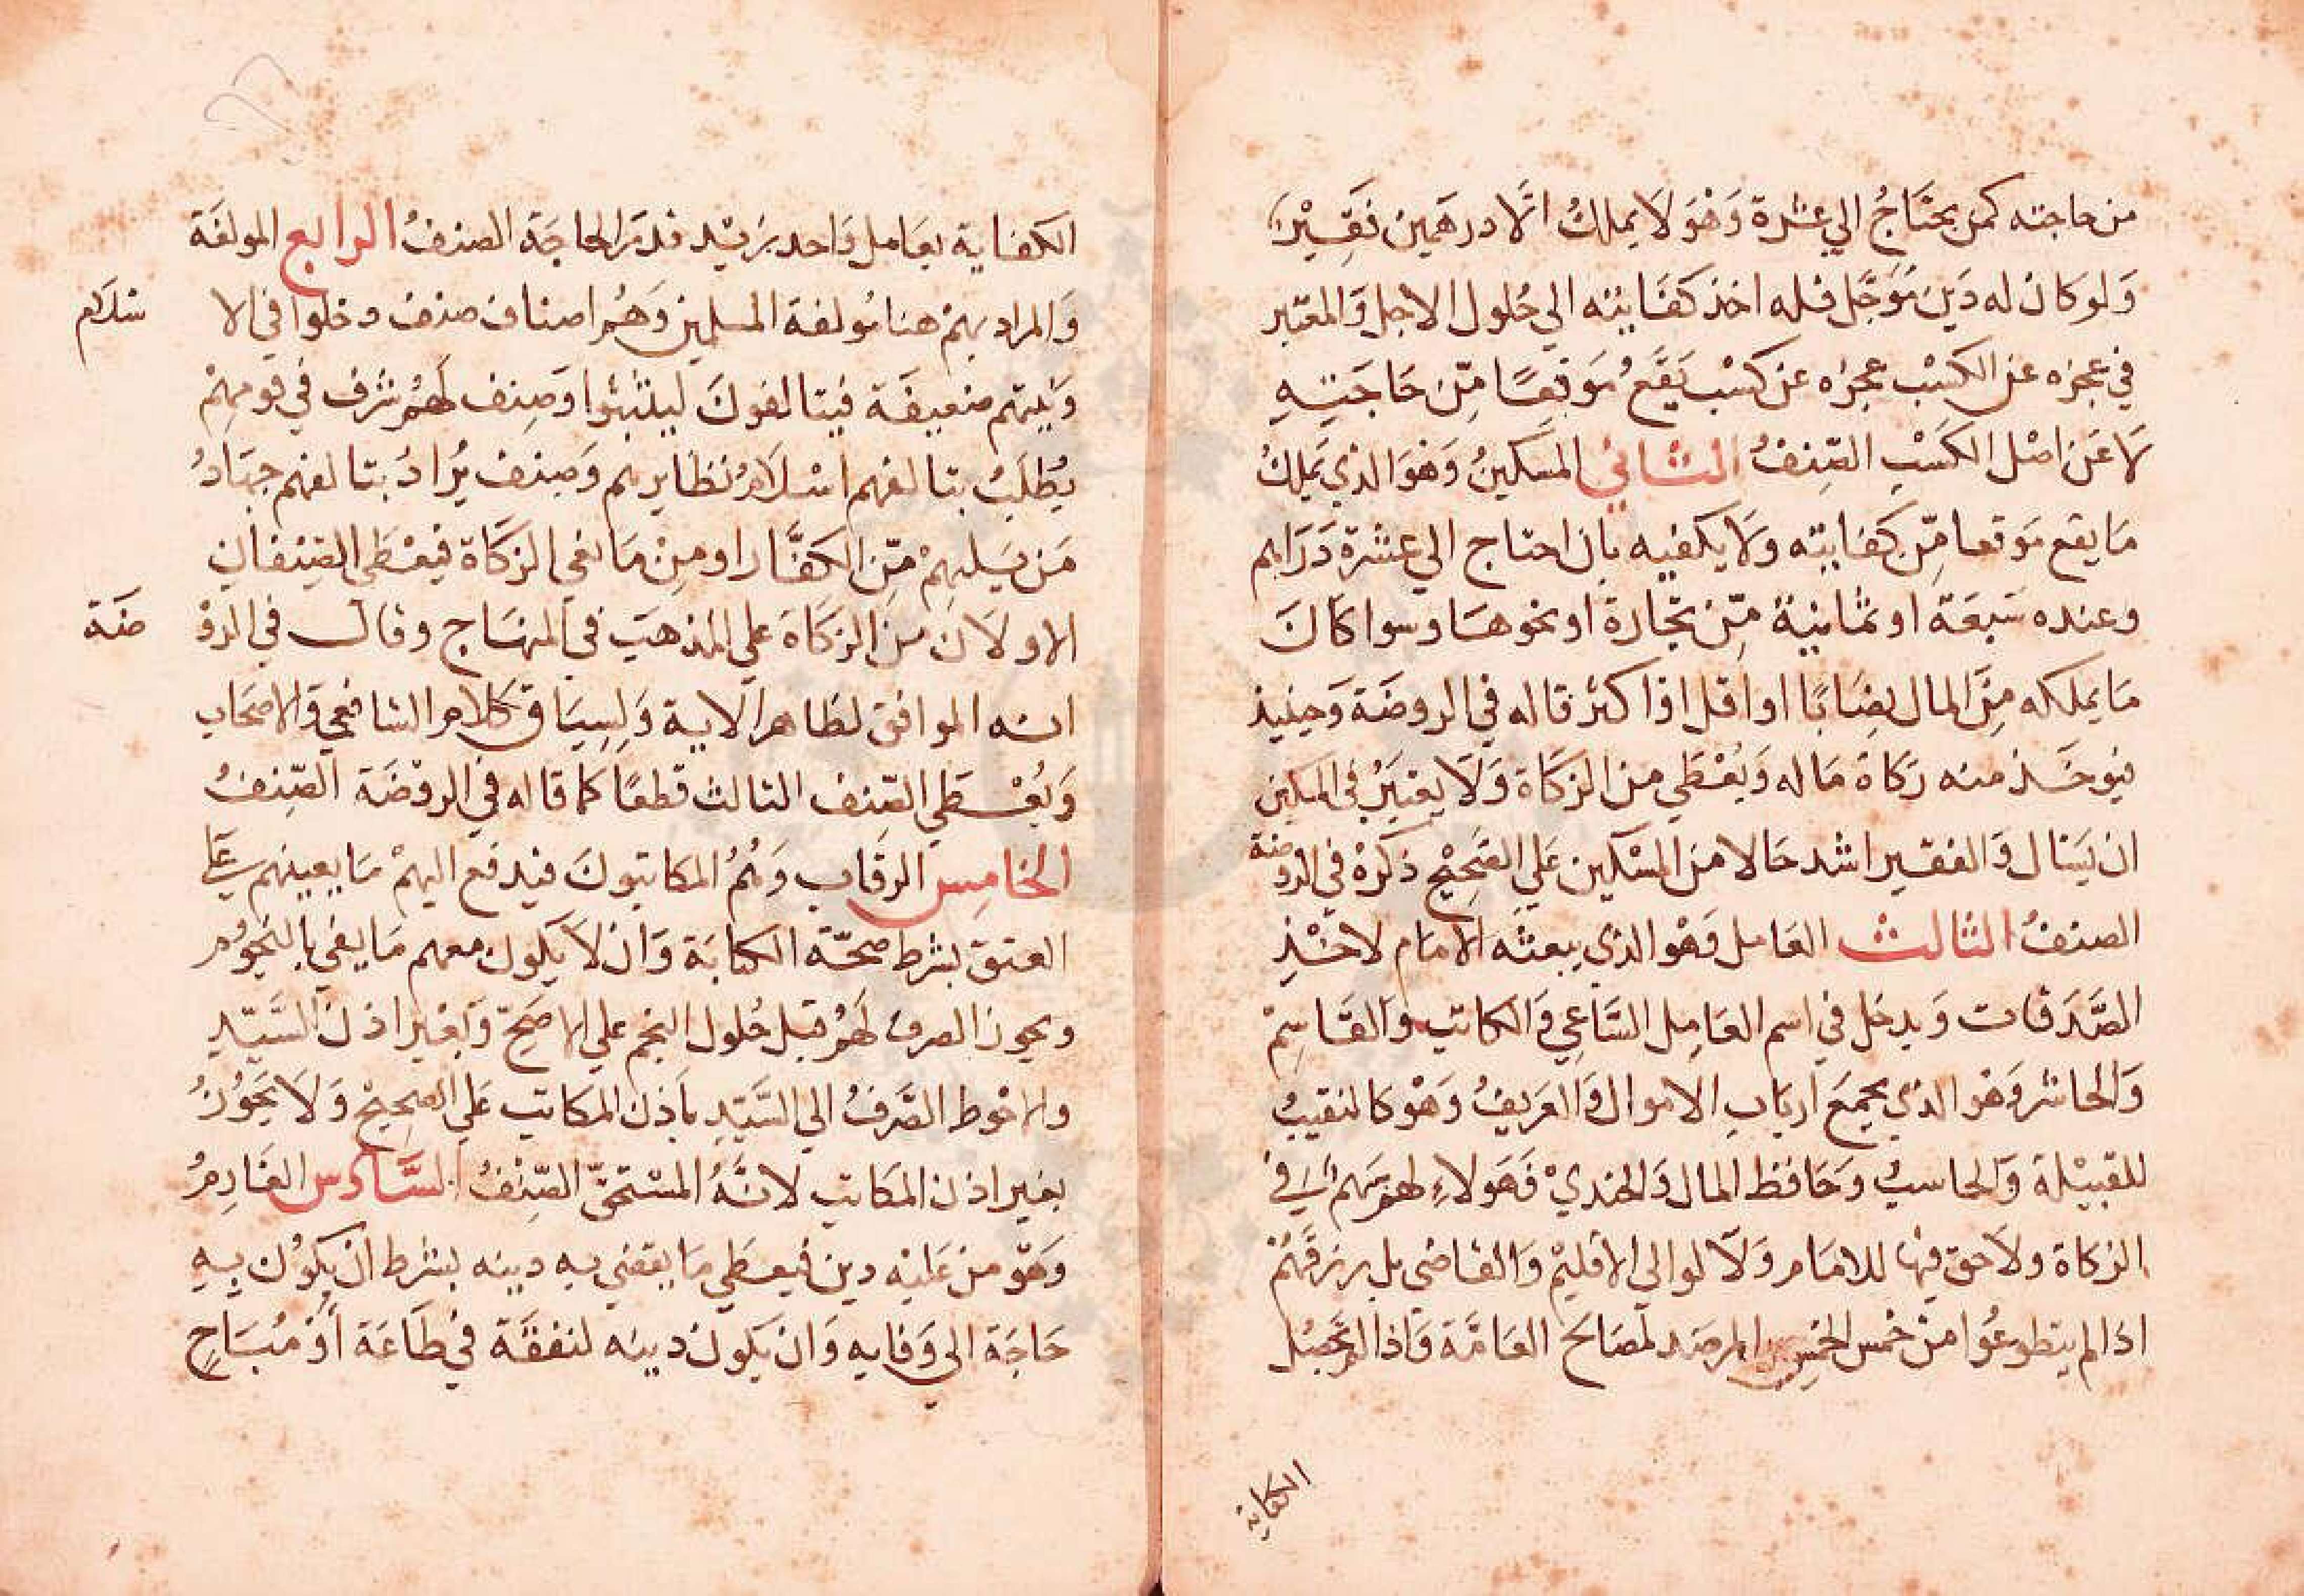 من حاجته كمن يحتَاجُ الي عشرة وَهوَ لَا يملكُ الَّا درهَمين فَقِيْرٌ
وَلو كان له دَين مُؤجَّل فله اخذ كفَايته الي حُلول الاجل وَالمعتبر
في عجزه عن الكسْب عجزه عن كسْب يَقَعُ مَوقِعًا مِّن حَاجَتِهِ
لَا عَن اصْل الكَسْبِ الصِّنفُ الثاني المسكينُ وَهوَ الذي يَملكُ
مَا يقع مَوقعا مِّن كفايته وَلَا يكفيه بان احتاج الي عشرة دَرَاهم
وعنده سَبعَة او ثمانيَة مِّن تجَارة او نحوهَا وسوا كَانَ
مَا يملكه مِنَ المال نِصَابًا او اقل او اكثر قاله في الروضَة وَحينيذ
فيوخَذ منه زكاة مَاله وَيُعْطَي من الزكَاة وَلَا يعتبَرُ في المسكين
ان يَسَال وَالفقير اشد حَالا من المسْكين عَلي الصَّحِيْحِ ذكرهُ في الروضة
الصنفُ الثالث العَامل وَهْو الذي يبعثه الامَام لاخْذِ
الصَّدَقات وَيدخل في اسم العَامِل السَّاعِي وَالكاتب وَالقَاسِمْ
وَالحَاشر وَهو الذي يجمَعَ اربَابِ الاموال وَالعَريفُ وَهْوَ كالنقيبُ
للقبيْلة وَالحاسبُ وَحَافظ المال وَالجنديْ فَهَولاءِ لهمْ سَهم في
الزكاة ولاَ حق فيها للامَام وَلَا لوالي الاقليْم وَالقاضي بل يرزقهُمْ
اذا لم يتطوعُوا من خمس الخمس المرصَد لمصَالح العَامَّة وَاذا لم تحصُل
الكفاية
الكفاية بعَامل وَاحد يزيْد قدْرَ الحاجَة الصنفُ الرابع المولفَة
وَالمراد بهمْ هنا مُولفة المسلمين وَهُم اصناف صنف دخلوا في الا
سلام
وَنيتهم ضعيفَة فيتالفونَ ليثبتُوا وَصِنف لَهُم شرَف في قومِهمْ
يُطْلَبُ بتالفهم اسْلَامُ نظايرهم وَصِنف يُرَادُ بتالفهم جِهَادُ
مَن يَليهِمْ مِّن الكفَّار او مِنْ مَانعي الزكَاة فيُعْطَي الصِّنفانِ
الاولَان مِنَ الزكَاةَ علي المذهبَ في المنهَاج وقال في الروْ
ضَة
انه الموافق لظاهر الاية وَلِسِيَاق كَلام الشافعي وَالاصحَاب
وَيُعْطَي الصِّنف الثالث قطعًا كما قاله في الروْضَة الصِّنفُ
الخامِس الرقَاب وَهُمُ المكاتبونَ فيدفع اليهمْ مَا يعينهم عَلي
العتق بشرط صحَّة الكتابَة وَان لاَ يَكون معهم مَا يفي بالنجُوم
ويجوز الصرف لَهُم قبل حُلول النجم علي الاصَحِّ وَبغير اذن السَّيّدِ
والاحْوط الصَّرفُ الي السَّيّدِ باذن المكاتب عَلي الصَّحِيْحِ وَلاَ يَجُوزُ
بغير اذن المكاتب لانَّهُ المسْتحقّ الصِّنْفُ السَّادس الغَارِمُ
وَهوَ من عَليْه دين فيعطَي مَا يقضي به دينه بشرط ان يكوُن بِهِ
حَاجَة الي وَفايه وَان يَكون دينه لنفقَة في طَاعَة أوْ مُبَاحٍ